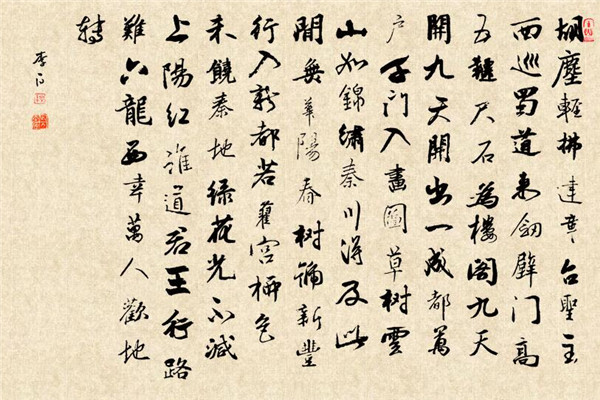 胡塵輕拂建章台聖主
西巡蜀道来劍壁门高
五韆尺石為樓阁九天
開九天開出一成都萬
户千门入畫圖草树雲
山如錦繡秦川得及此
間無華陽春树號新豐
行入新都若舊宫柳色
未饒秦地绿花光不减
上陽红誰道君王行路
難六龍西幸萬人歡地
轉
李白